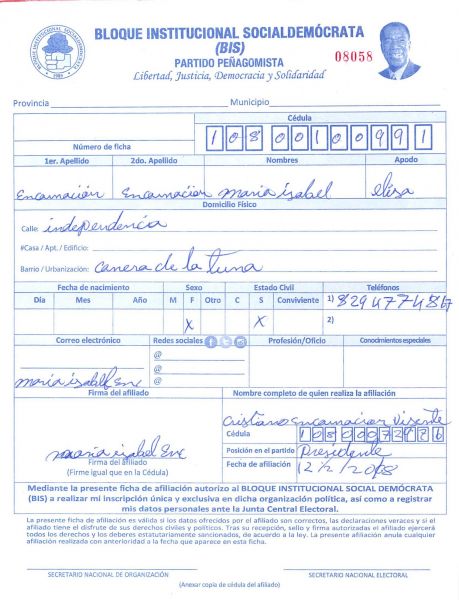 BLOQUE INSTITUCIONAL SOCIALDEMÓCRATA
(BIS)
PARTIDO PEÑAGOMISTA
Libertad, Justicia, Democracia y Solidaridad
08058
Provincia Municipio
Número de ficha
Cédula
108 0010099 1
1er. Apellido 2do. Apellido Nombres Apodo
Encarnación Encarnacion Maria isabel elisa
Domicilio Físico
Calle: independencia
#Casa / Apt. / Edificio:
Barrio / Urbanización: Canera de la Tuna
Fecha de nacimiento Sexo Estado Civil Teléfonos
Día Mes Año M F Otro C S Conviviente 1) 8294774867
X X 2)
Correo electrónico Redes sociales Profesión/Oficio Conocimientos especiales
@
@
maria isabel Enc @
Firma del afiliado Nombre completo de quien realiza la afiliación
Cristiano Encarnacion Visente
Cédula
maria isabel Enc Posición en el partido Presidente
Firma del afiliado
(Firme igual que en la Cédula)
Fecha de afiliación 12/2/2018
Mediante la presente ficha de afiliación autorizo al BLOQUE INSTITUCIONAL SOCIAL DEMÓCRATA
(BIS) a realizar mi inscripción única y exclusiva en dicha organización política, así como a registrar
mis datos personales ante la Junta Central Electoral.
La presente afiliación es válida si los datos ofrecidos por el afiliado son correctos, las declaraciones veraces y si el
afiliado tiene el disfrute de sus derechos civiles y políticos. Tras su recepción, sello y firma autorizados el afiliado ejercerá
todos los derechos y los deberes estatutariamente sancionados, de acuerdo a la ley. La presente afiliación anula cualquier
afiliación realizada con anterioridad a la fecha que aparece en esta ficha.
SECRETARIO NACIONAL DE ORGANIZACIÓN SECRETARIO NACIONAL ELECTORAL
(Anexar copia de cédula del afiliado)